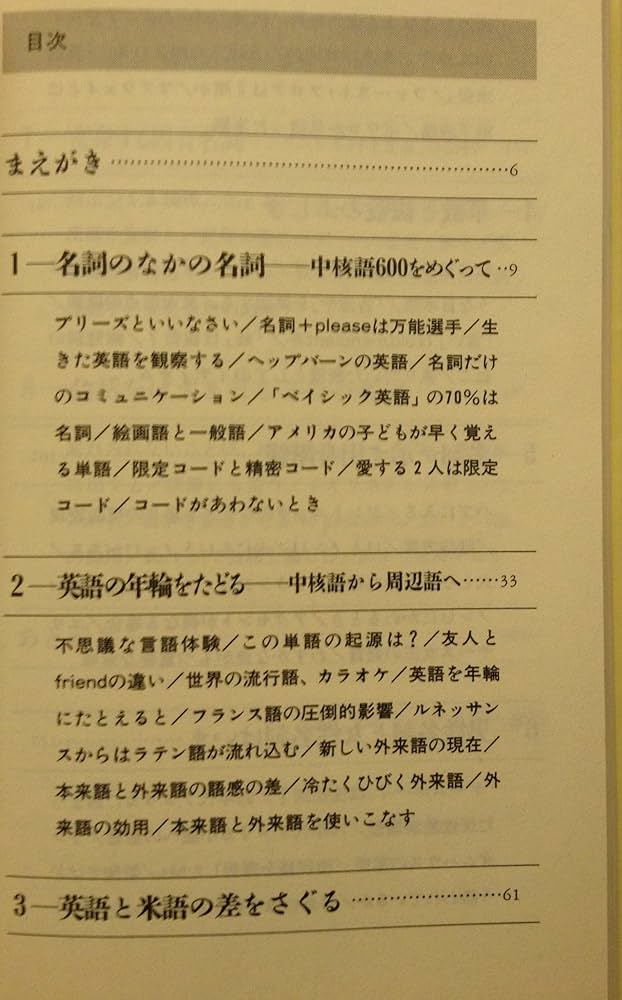 目次
まえがき……………………………………………6
1―名詞のなかの名詞――中核語600をめぐって‥9
プリーズといいなさい／名詞＋pleaseは万能選手／生
きた英語を観察する／ヘップバーンの英語／名詞だけ
のコミュニケーション／「ベイシック英語」の70％は
名詞／絵画語と一般語／アメリカの子どもが早く覚え
る単語／限定コードと精密コード／愛する2人は限定
コード／コードがあわないとき
2―英語の年輪をたどる――中核語から周辺語へ……33
不思議な言語体験／この単語の起源は？／友人と
friendの違い／世界の流行語、カラオケ／英語を年輪
にたとえると／フランス語の圧倒的影響／ルネッサン
スからはラテン語が流れ込む／新しい外来語の現在／
本来語と外来語の語感の差／冷たくひびく外来語／外
来語の効用／本来語と外来語を使いこなす
3―英語と米語の差をさぐる……………………61